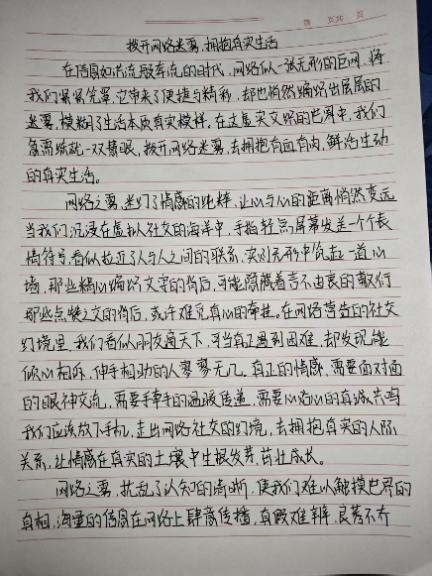 第 页 共 页
拨开网络迷雾,拥抱真实生活
在信息如洪流般奔流的时代,网络似一张无形的巨网,将
我们紧紧笼罩,它带来了便捷与精彩,却也悄然编织出层层的
迷雾,模糊了生活本质真实模样。在这虚实交织的世界中,我们
急需练就一双慧眼,拨开网络迷雾,去拥抱有血有肉,鲜活生动
的真实生活。
网络之雾,迷幻了情感的纯粹,让心与心的距离悄然变远
当我们沉浸在虚拟社交的海洋中,手指轻点屏幕发送一个个表
情符号,看似拉近了人与人之间的联系,实则无形中竖起一道心
墙,那些精心编织文字的背后,可能隐藏着言不由衷的敷衍
那些点赞之交的背后,或许难觅真心的牵挂。在网络营造的社交
幻境里,我们看似朋友遍天下,可当真正遇到困难,却发现能
倾心相诉、伸手相助的人寥寥无几。真正的情感,需要面对面
的眼神交流,需要手牵手的温暖传递,需要心与心的真诚共鸣
我们应该放下手机,走出网络社交的幻境,去拥抱真实的人际
关系,让情感在真实的土壤中生根发芽,茁壮成长。
网络之雾,扰乱了认知的清晰,使我们难以触摸世界的
真相,海量的信息在网络上肆意传播,真假难辨,良莠不齐